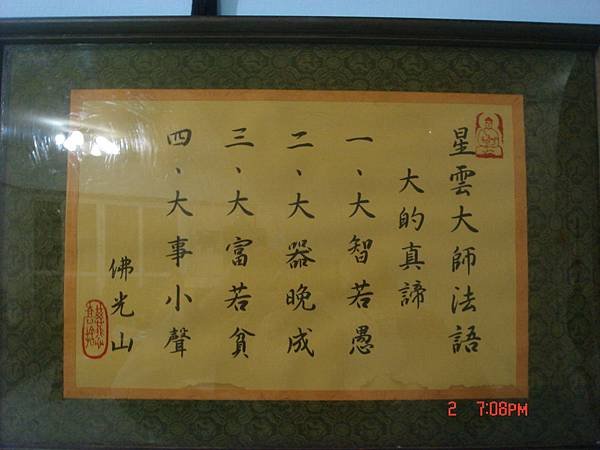 星雲大師法語
大的真諦
一、大智若愚
二、大器晚成
三、大富若貧
四、大事小聲
佛光山
2 7:08PM